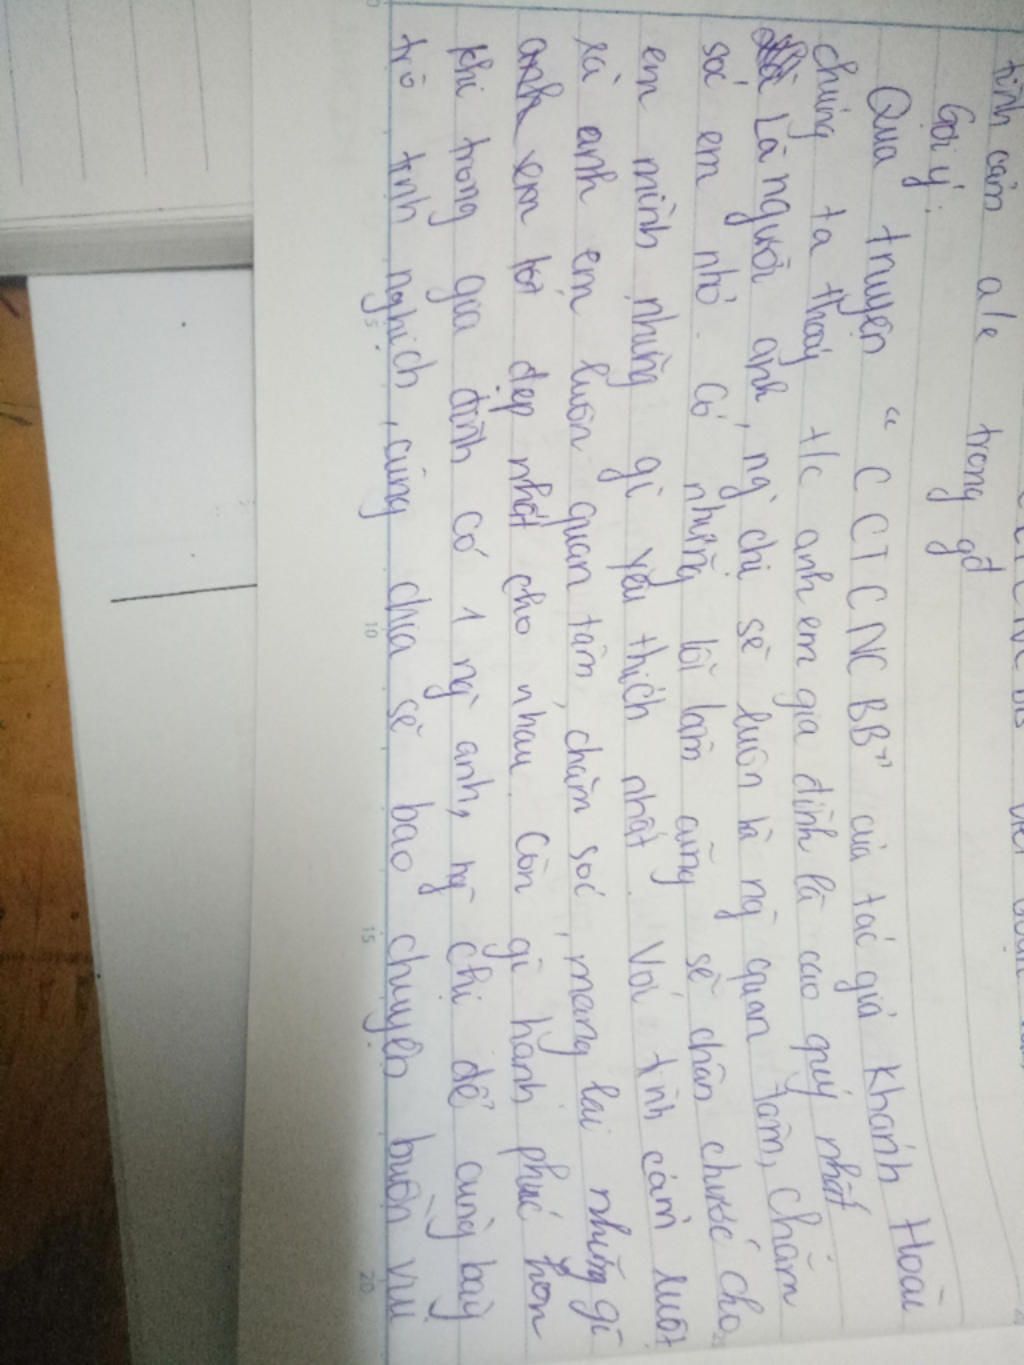 tình cảm a/e trong gđ
Gợi ý:
Qua truyện " C CTC NC BB" của tác giả Khánh Hoài
chúng ta thấy t/c anh em gia đình là cao quý nhất
Là người anh, ng chị sẽ luôn là ng quan tâm, chăm
sóc em nhỏ. Có những lỗi lầm cũng sẽ chăn chước cho
em mình những gì yêu thích nhất. Với tình cảm ruột
anh em luôn quan tâm, chăm sóc, mang lại những gì
tốt đẹp nhất cho nhau. Còn gì hạnh phúc hơn
khi trong gia đình có 1 ng anh, ng chị để cùng bày
trò tinh nghịch, cùng chia sẻ bao chuyện buồn vui
5
10
15
20